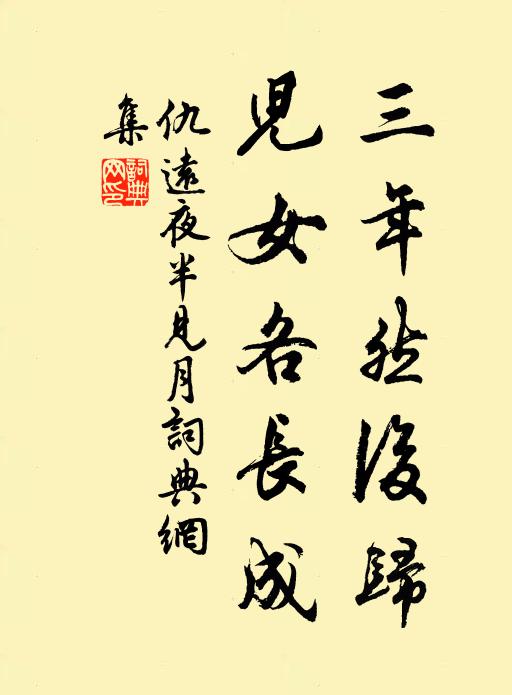 三年然後歸
兒女各長成
仇遠夜半見月詞典網
集
詞典
网印